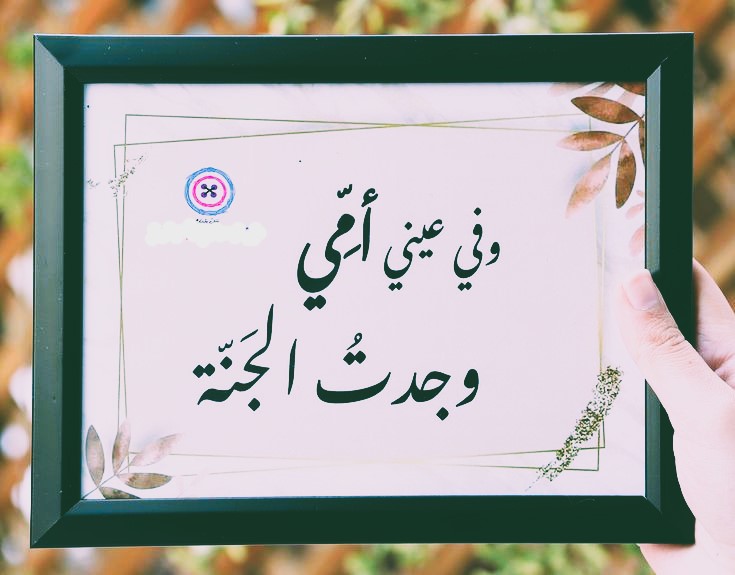 وفي عيني أمِّي
وجدتُ الجَنّة